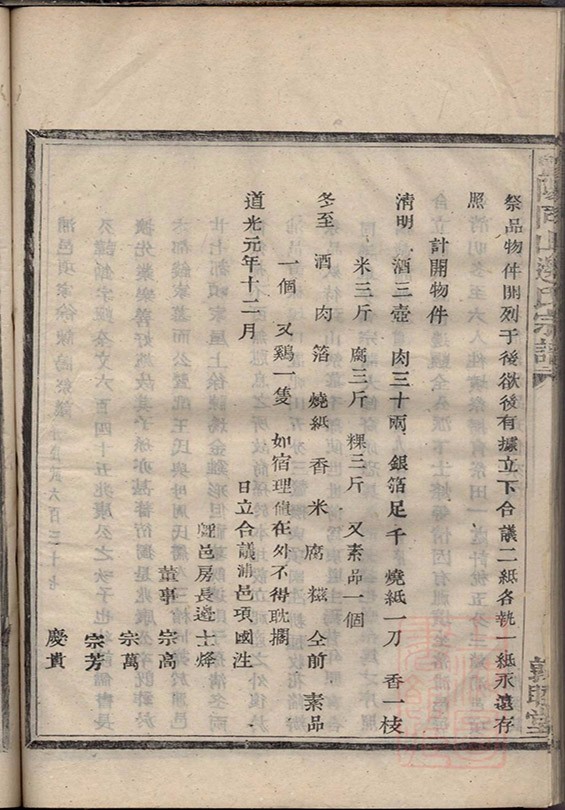 祭品物件開列于後欲後有據立下合議二紙各執一紙永遠存
照
計開物件
清明 酒三壺 肉三十兩 銀箔足千 燒紙一刀 香一枝
米三斤 腐三斤 粿三斤 又素品一個
冬至 酒 肉 箔 燒紙 香 米 腐 糍 仝前 素品
一個 又鷄一隻 如宿理值在外不得耽擱
道光元年十二月 日立合議浦邑項國泩
邑房長邊士烽
董事 宗高
宗萬
宗芳
慶貴